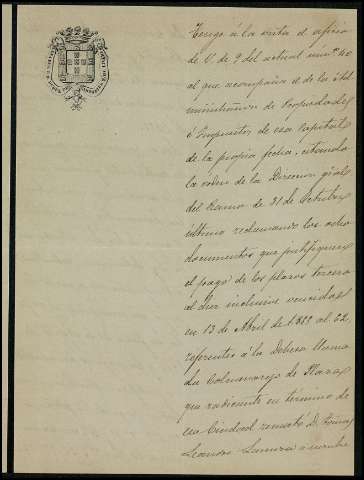 Tengo á la vista el oficio
de V. de 9 del actual num.º 40
al que acompaña el de la Ad
ministracion de Propiedades
é Impuestos de esa Capital
de la propia fecha, citando
la orden de la Direccion gral
del Ramo de 31 de Octubre
último reclamando los ocho
documentos que justifiquen
el pago de los plazos tercero
al diez inclusive vencidos
en 13 de Abril de 18 al 62
referentes á la Dehesa llama
da Colmenarejo de Plaza
que radicante en término de
esa Ciudad remató D.
Leandro